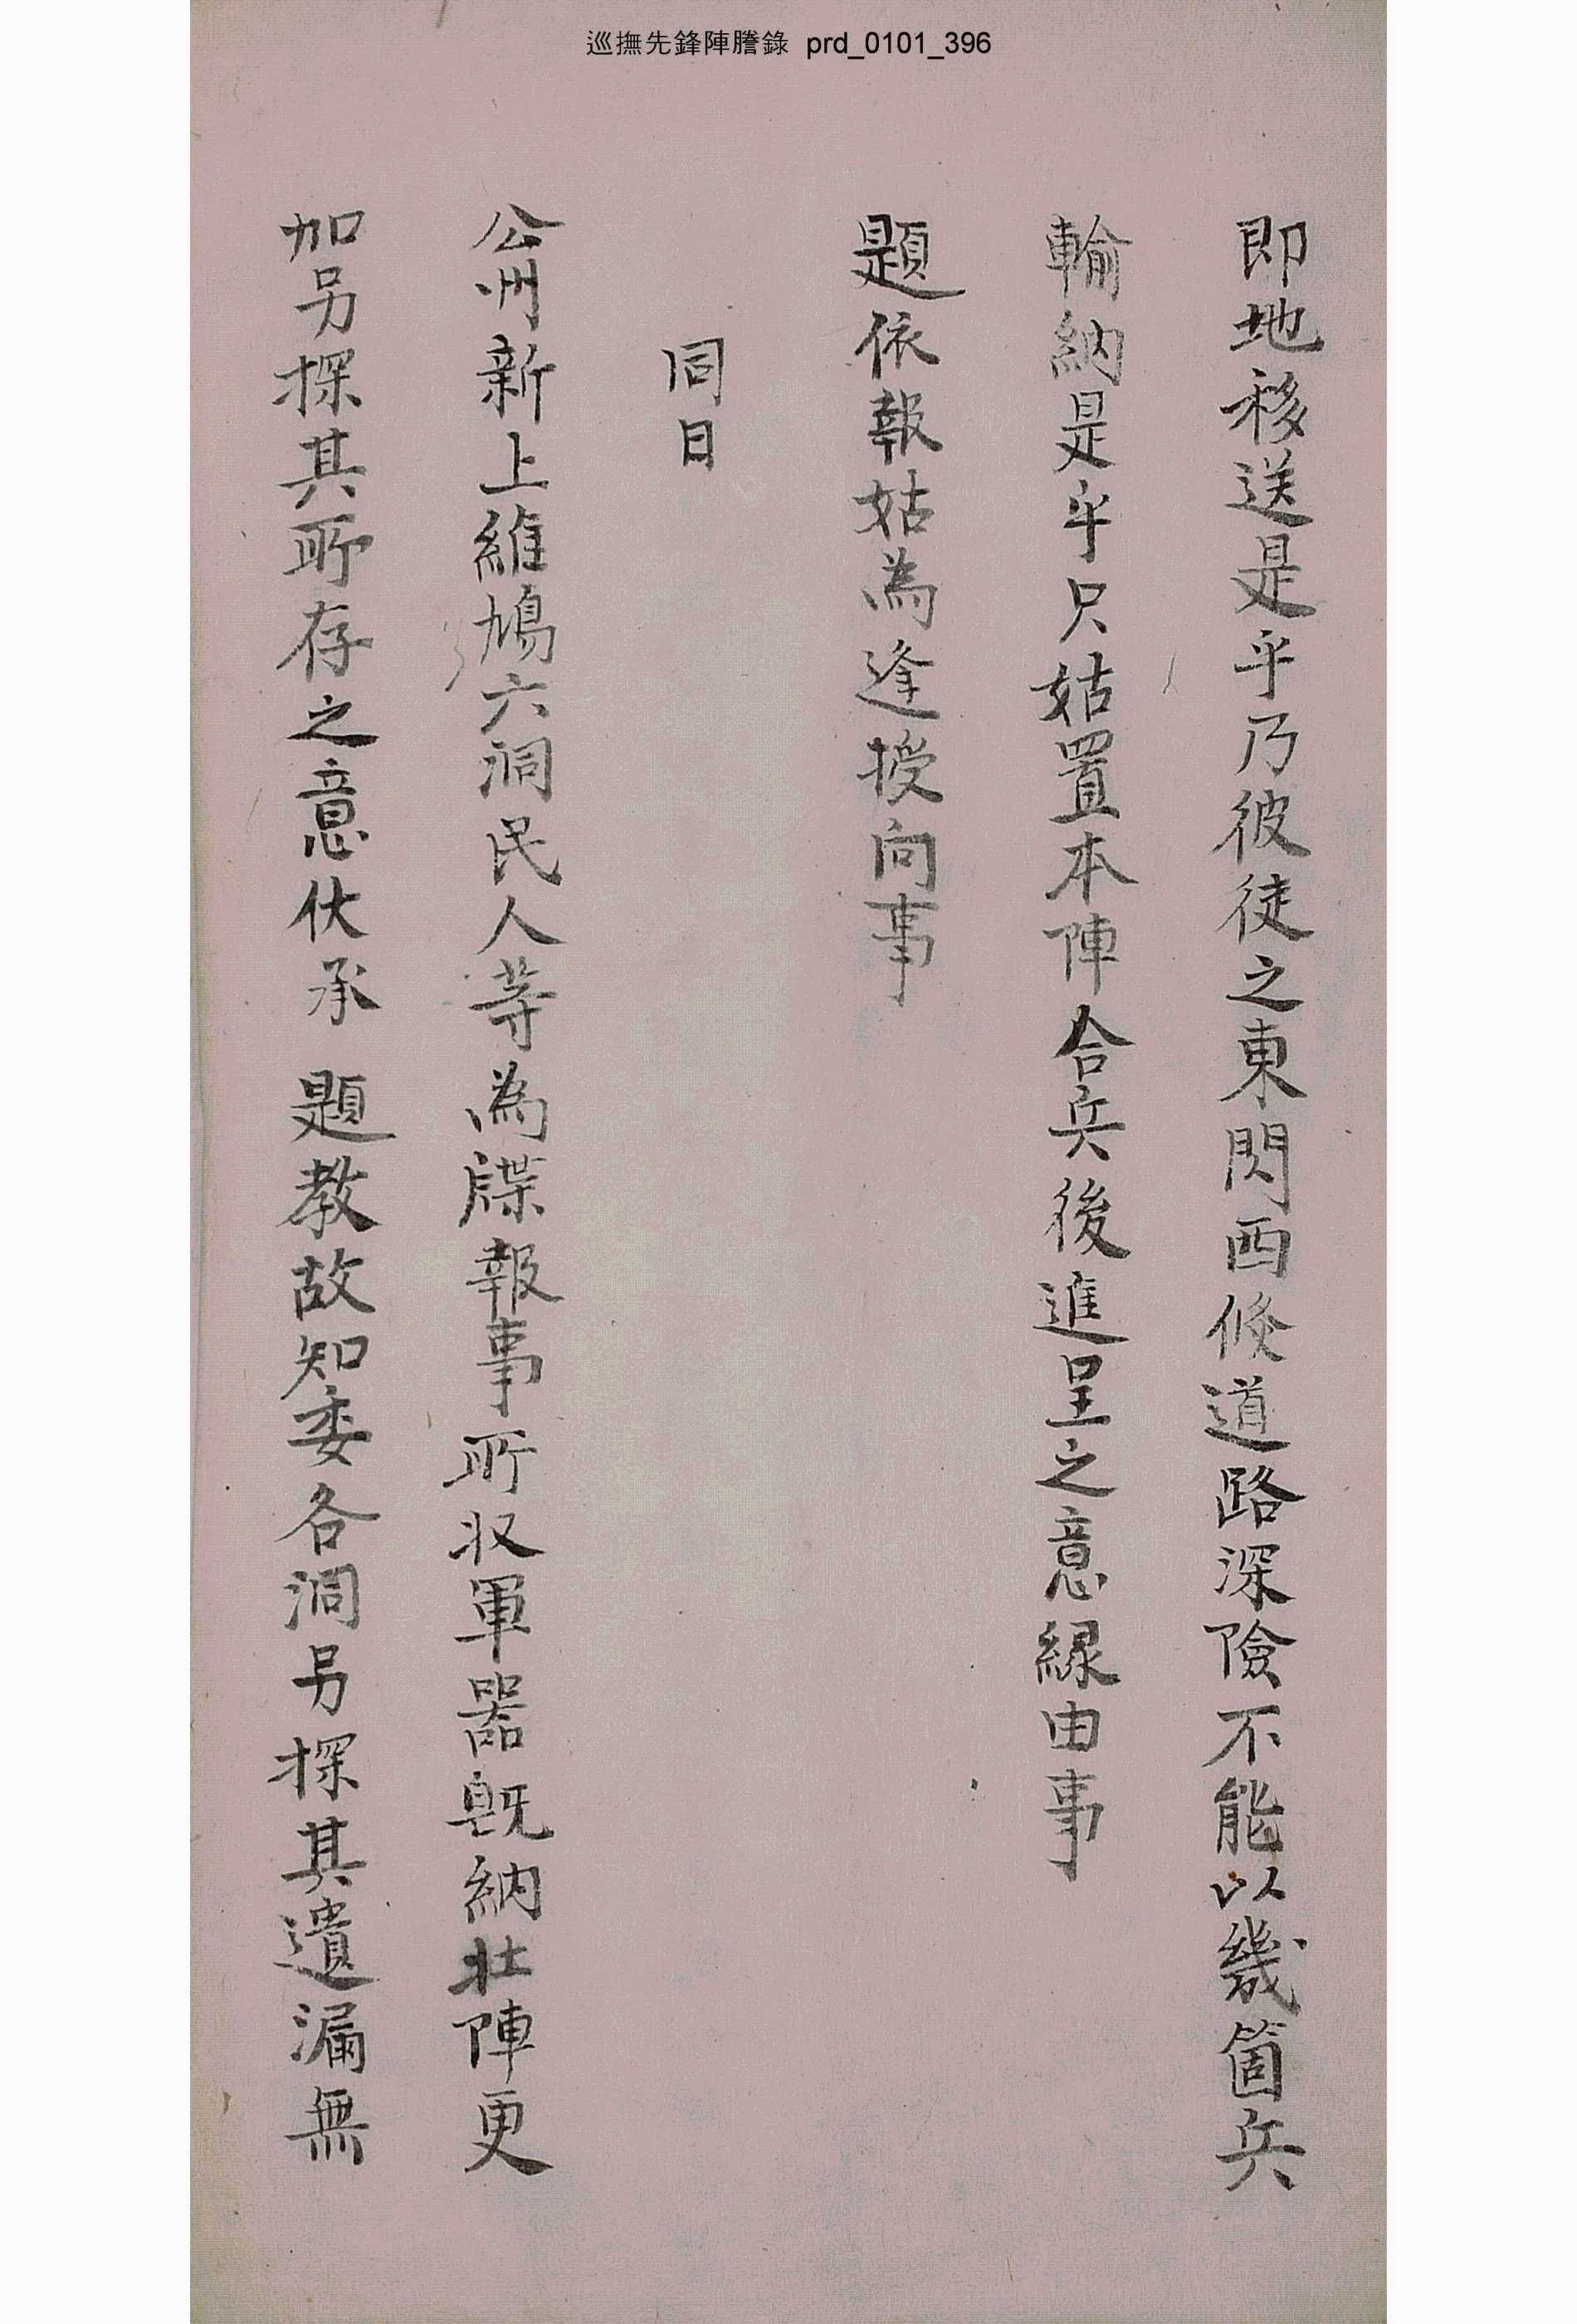 巡撫先鋒陣謄錄 prd_0101_396
即地移送是乎乃彼徒之東閃西倏道路深險不能以幾箇兵
輸納是乎只姑置本陣合兵後進呈之意緣由事
題依報姑為逢授向事
同日
公州新上維鳩六洞民人等為牒報事所收軍器旣納壯陣更
加另探其所存之意伏承 題教故知委各洞另探其遺漏無